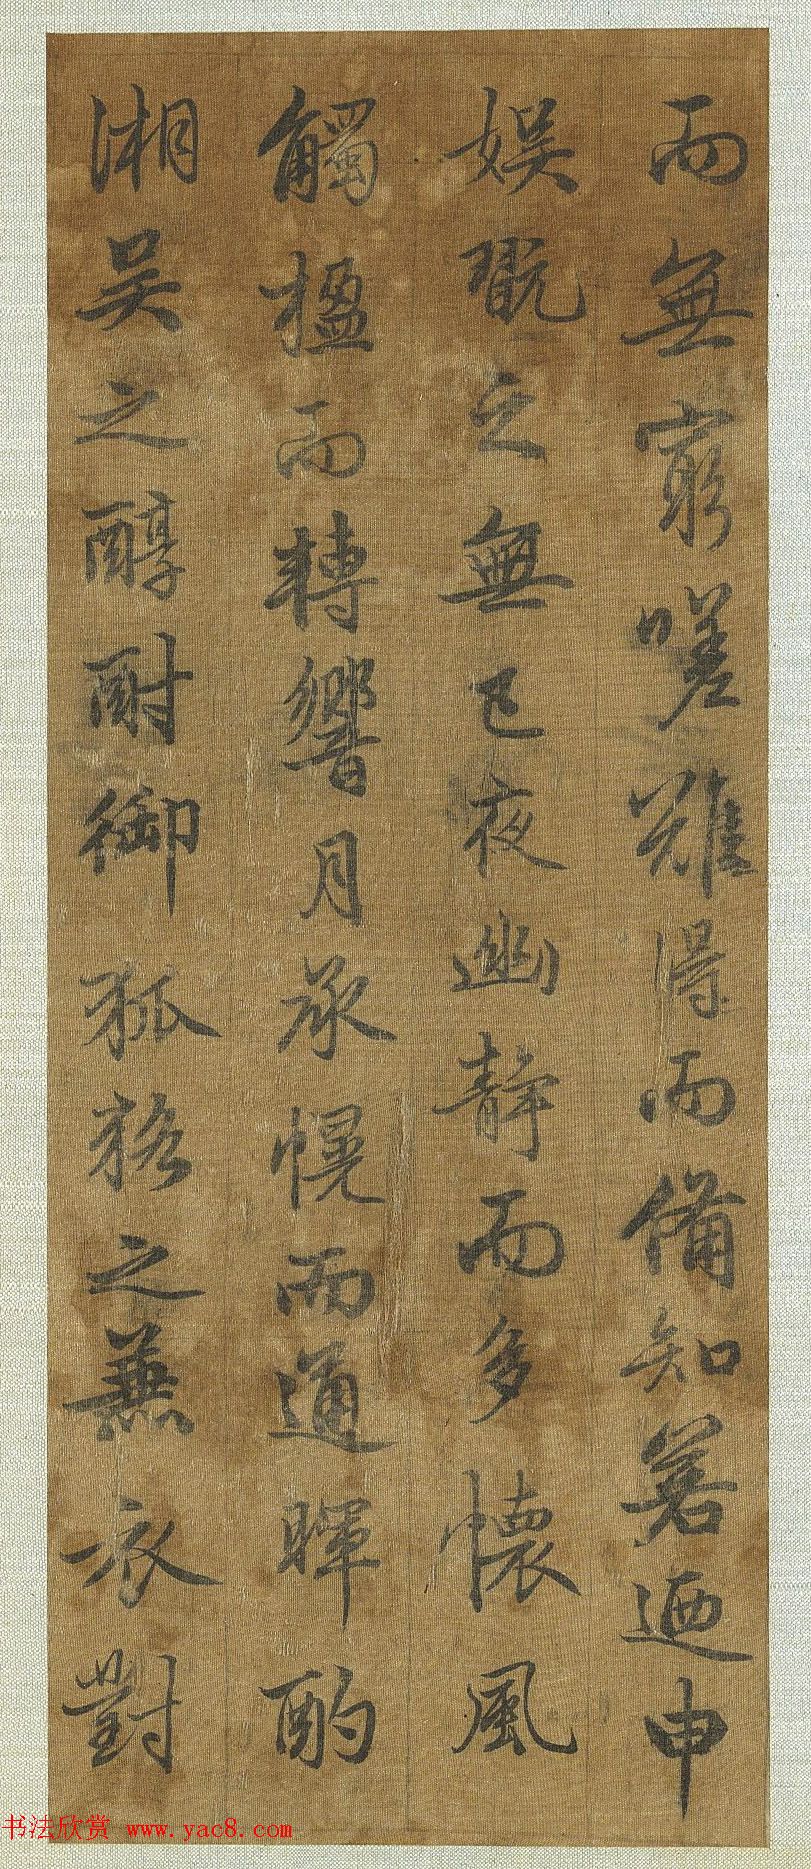 而無窮嗟難得而備知若迺申
娛翫之無已夜幽靜而多懷風
觸楹而轉響月承幌而通暉酌
湘吴之醇酎御狐狢之兼衣對
书法欣赏 www.yac8.com